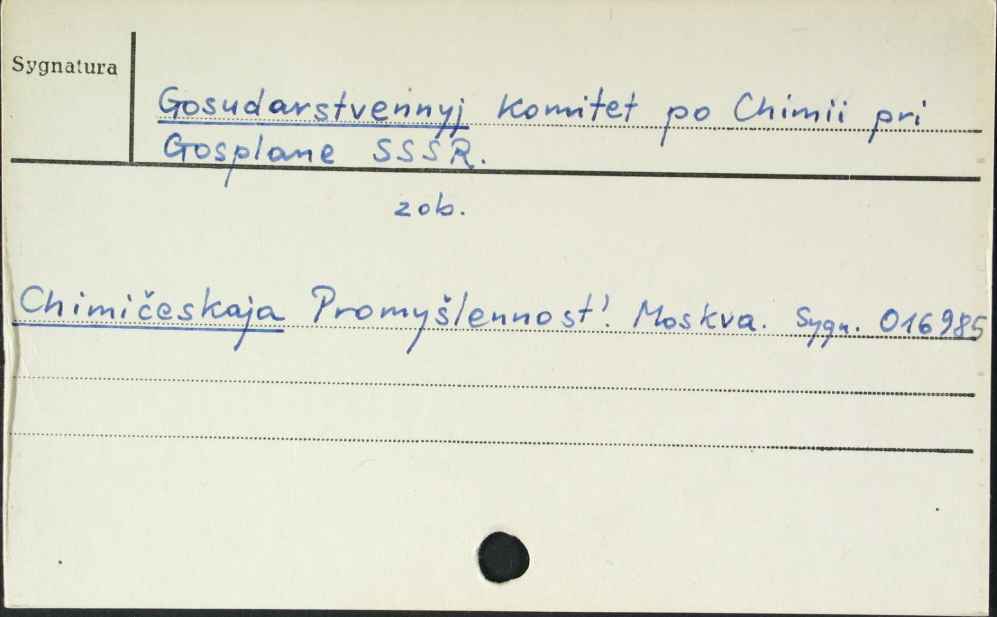 Sygnatura
Gosudarstvennyj Komitet po Chimii pri
Gosplane SSSR.
zob.
Chimičeskaja Promyšlennost'. Moskva. Sygn. 016985